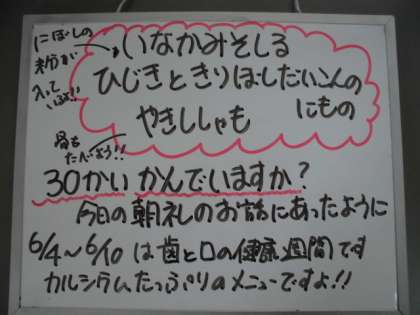 にぼしの
粉が
入って
いるよ!!
いなかみそしる
ひじきときりぼしだいこんの
にもの
やきししゃも
骨も
たべよう!!
30かい かんでいますか?
今日の朝礼のお話にあったように
6/4～6/10 は歯と口の健康週間です
カルシウムたっぷりのメニューですよ!!